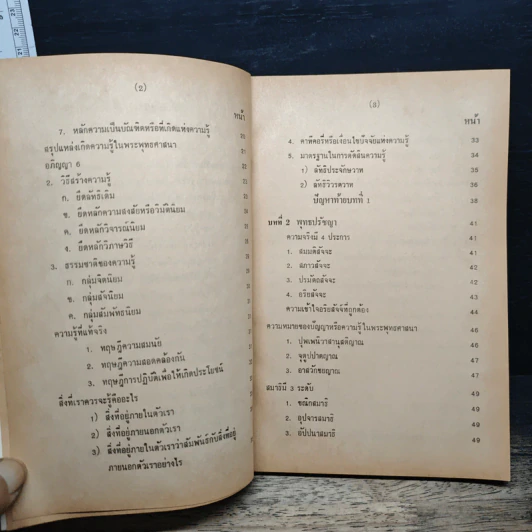 (2)
หน้า
7. หลักความเป็นบัณฑิตหรือที่เกิดแห่งความรู้
สรุปแหล่งเกิดความรู้ในพระพุทธศาสนา
อภิญญา 6
2. วิธีสร้างความรู้
ก. ยึดลัทธิเดิม
ข. ยึดหลักความสงสัยหรือวิมัตินิยม
ค. ยึดหลักวิจารณ์นิยม
ง. ยึดหลักวิภาษวิธี
3. ธรรมชาติของความรู้
ก. กลุ่มจิตนิยม
ข. กลุ่มสัจนิยม
ค. กลุ่มสัมพัทธนิยม
ความรู้ที่แท้จริง
1. ทฤษฎีความสมนัย
2. ทฤษฎีความสอดคล้องกัน
3. ทฤษฎีการปฏิบัติเพื่อให้เกิดประโยชน์
สิ่งที่เราควรจะรู้คืออะไร
1) สิ่งที่อยู่ภายในตัวเรา
2) สิ่งที่อยู่ภายนอกตัวเรา
3) สิ่งที่อยู่ภายในตัวเราว่าสัมพันธ์กับสิ่งที่อยู่
ภายนอกตัวเราอย่างไร
(3)
หน้า
4. คาติคอรี่หรือเงื่อนไขปัจจัยแห่งความรู้ 33
5. มาตรฐานในการตัดสินความรู้ 34
1) ลัทธิประจักษวาท 35
2) ลัทธิวิวรตวาท 36
ปัญหาท้ายบทที่ 1 38
บทที่ 2 พุทธปรัชญา 41
ความจริงมี 4 ประการ 41
1. สมมติสัจจะ 41
2. สภาวสัจจะ 41
3. ปรมัตถสัจจะ 42
4. อริยสัจจะ 42
ความเข้าใจอริยสัจจ์ที่ถูกต้อง 44
ความหมายของปัญญาหรือความรู้ในพระพุทธศาสนา 46
1. ปุพเพนิวาสานุสติญาณ 46
2. จุตูปปาตญาณ 47
3. อาสวักขยญาณ 47
สมาธิมี 3 ระดับ 49
1. ขณิกสมาธิ 49
2. อุปจารสมาธิ 49
3. อัปปนาสมาธิ 49